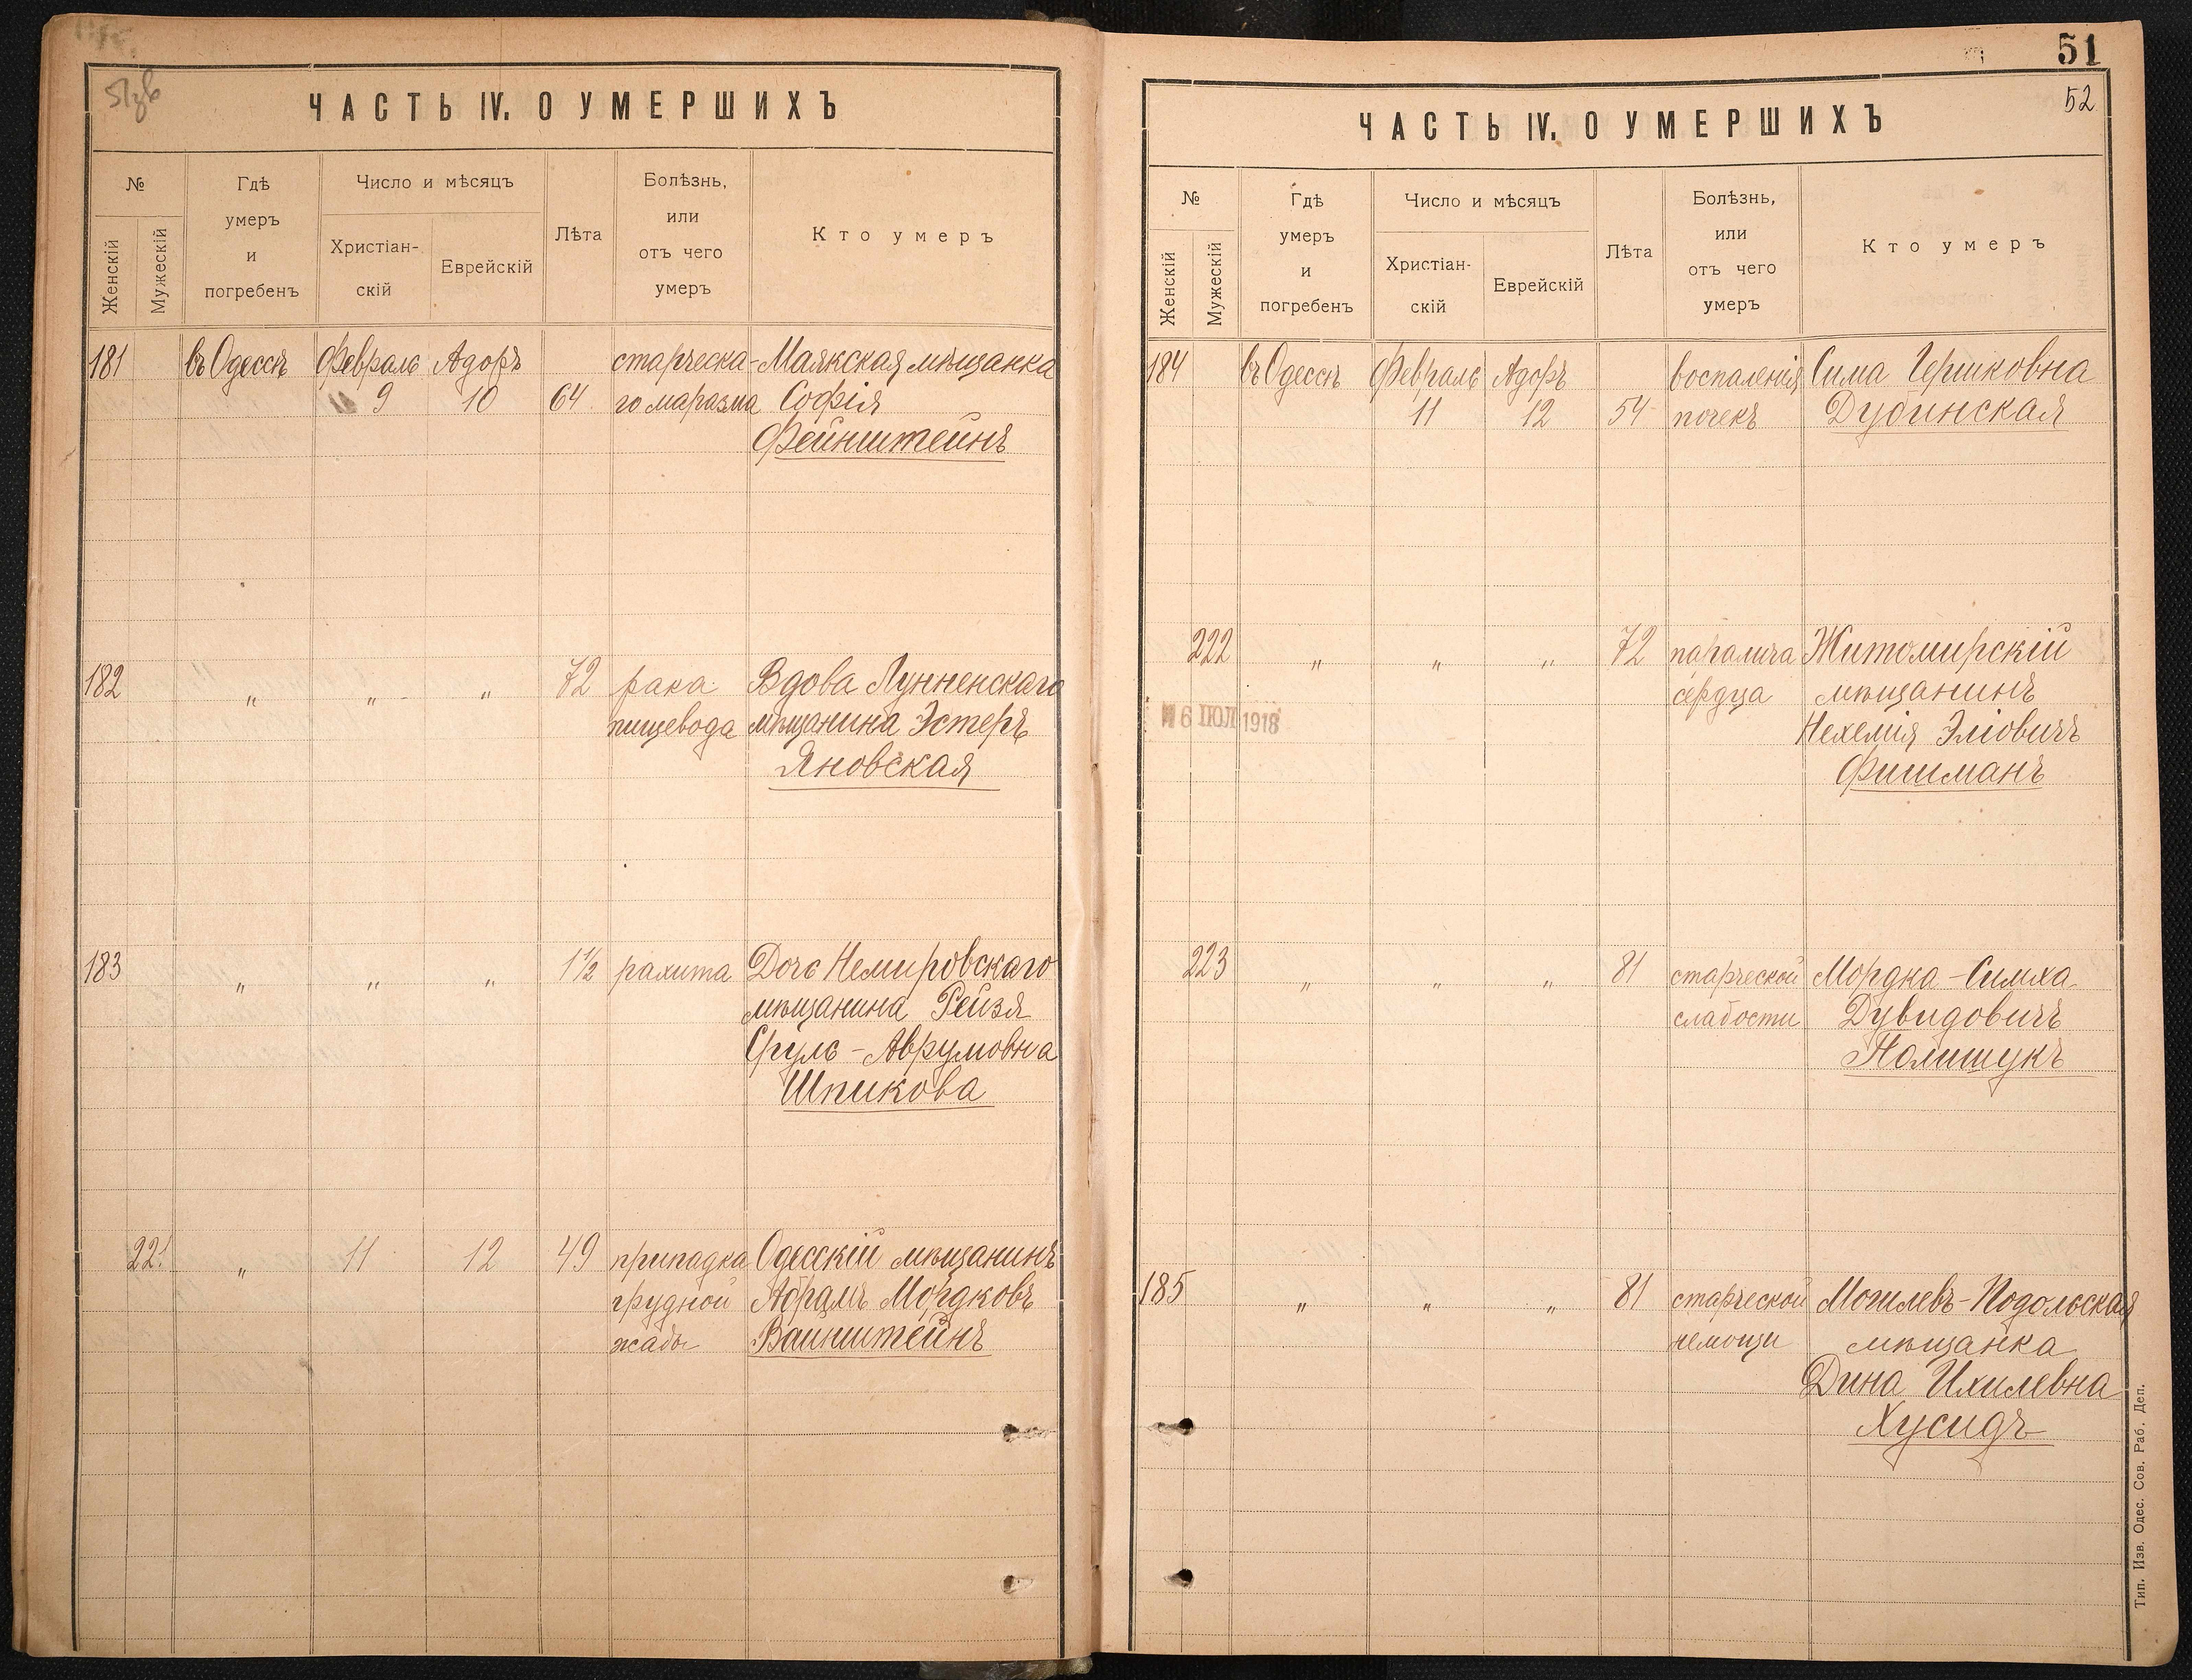 ЧАСТЬ IV. О УМЕРШИХЪ
№
Женскій
Мужескій
Гдѣ
умеръ
и
погребенъ
Число и мѣсяцъ
Христіан-
скій
Еврейскій
Лѣта
Болѣзнь,
или
отъ чего
умеръ
Кто умеръ
181 въ Одессѣ Февраль Адоръ старческа- Маякская мѣщанка
9 10 64 го маразма Софія
Фейнштейнъ
182 " " " 72 рака Вдова Лунненскаго
пищевода мѣщанина Эстеръ
Яновская
183 " " " 1½ рахита Дочь Немировскаго
мѣщанина Рейзя
Сруль-Аврумовна
Шпикова
221 " 11 12 49 припадка Одесскій мѣщанинъ
грудной Абрамъ Мордковъ
жабы Ваинштейнъ
51
52
ЧАСТЬ IV. О УМЕРШИХЪ
№
Женскій
Мужескій
Гдѣ
умеръ
и
погребенъ
Число и мѣсяцъ
Христіан-
скій
Еврейскій
Лѣта
Болѣзнь,
или
отъ чего
умеръ
Кто умеръ
184 въ Одессѣ Февраль Адоръ воспаленія Сима Гершковна
11 12 54 почекъ Дубинская
222 " " " 72 паралича Житомирскій
сердца мѣщанинъ
6 ІЮЛ 1918
Нехемія Эліовичъ
Фишманъ
223 " " " 81 старческой Мордка-Симха
слабости Дувидовичъ
Полищукъ
185 " " " 81 старческой Могилевъ-Подольская
немощи мѣщанка
Дина Ихилевна
Хусидъ
Тип. Изв. Одес. Сов. Раб. Деп.